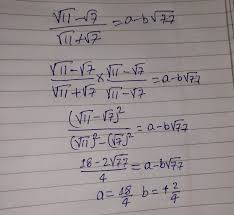 (√11 - √7)/(√11 + √7) = a - b√77
(√11 - √7)/(√11 + √7) × (√11 - √7)/(√11 - √7) = a - b√77
(√11 - √7)²/((√11)² - (√7)²) = a - b√77
(18 - 2√77)/4 = a - b√77
a = 18/4 b = +2/4